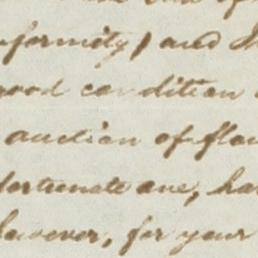 formity, and
good condition
auction of flou
fortunate one, ha
however, for your